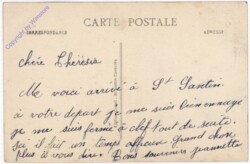 CARTE POSTALE
CORRESPONDANCE ADRESSE
Chère Thérèse
Me voici arrivé à St Santin
à votre départ je me suis bien ennuyé
je me suis fermé à chef tout de suite
il fait un temps affreux Grand chose
plus à vous dire. Bons souvenirs Jeannette